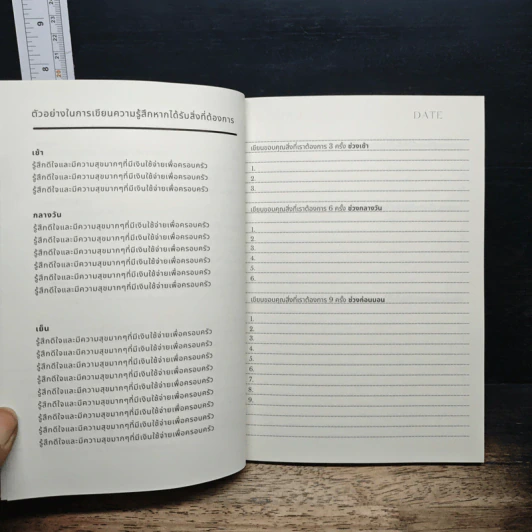 9
8
23
22
21
20
ตัวอย่างในการเขียนความรู้สึกหากได้รับสิ่งที่ต้องการ
เช้า
รู้สึกดีใจและมีความสุขมากๆที่มีเงินใช้จ่ายเพื่อครอบครัว
รู้สึกดีใจและมีความสุขมากๆที่มีเงินใช้จ่ายเพื่อครอบครัว
รู้สึกดีใจและมีความสุขมากๆที่มีเงินใช้จ่ายเพื่อครอบครัว
กลางวัน
รู้สึกดีใจและมีความสุขมากๆที่มีเงินใช้จ่ายเพื่อครอบครัว
รู้สึกดีใจและมีความสุขมากๆที่มีเงินใช้จ่ายเพื่อครอบครัว
รู้สึกดีใจและมีความสุขมากๆที่มีเงินใช้จ่ายเพื่อครอบครัว
รู้สึกดีใจและมีความสุขมากๆที่มีเงินใช้จ่ายเพื่อครอบครัว
รู้สึกดีใจและมีความสุขมากๆที่มีเงินใช้จ่ายเพื่อครอบครัว
รู้สึกดีใจและมีความสุขมากๆที่มีเงินใช้จ่ายเพื่อครอบครัว
เย็น
รู้สึกดีใจและมีความสุขมากๆที่มีเงินใช้จ่ายเพื่อครอบครัว
รู้สึกดีใจและมีความสุขมากๆที่มีเงินใช้จ่ายเพื่อครอบครัว
รู้สึกดีใจและมีความสุขมากๆที่มีเงินใช้จ่ายเพื่อครอบครัว
รู้สึกดีใจและมีความสุขมากๆที่มีเงินใช้จ่ายเพื่อครอบครัว
รู้สึกดีใจและมีความสุขมากๆที่มีเงินใช้จ่ายเพื่อครอบครัว
รู้สึกดีใจและมีความสุขมากๆที่มีเงินใช้จ่ายเพื่อครอบครัว
รู้สึกดีใจและมีความสุขมากๆที่มีเงินใช้จ่ายเพื่อครอบครัว
รู้สึกดีใจและมีความสุขมากๆที่มีเงินใช้จ่ายเพื่อครอบครัว
รู้สึกดีใจและมีความสุขมากๆที่มีเงินใช้จ่ายเพื่อครอบครัว
DATE
เขียนขอบคุณสิ่งที่เราต้องการ 3 ครั้ง ช่วงเช้า
1.
2.
3.
เขียนขอบคุณสิ่งที่เราต้องการ 6 ครั้ง ช่วงกลางวัน
1.
2.
3.
4.
5.
6.
เขียนขอบคุณสิ่งที่เราต้องการ 9 ครั้ง ช่วงก่อนนอน
1.
2.
3.
4.
5.
6.
7.
8.
9.